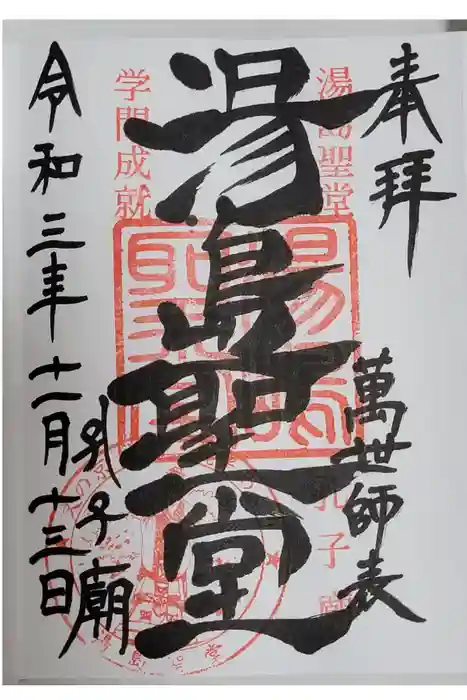 奉拝
萬世師表
湯島聖堂
湯島聖堂
学問成就
孔子廟
令和三年十一月十三日